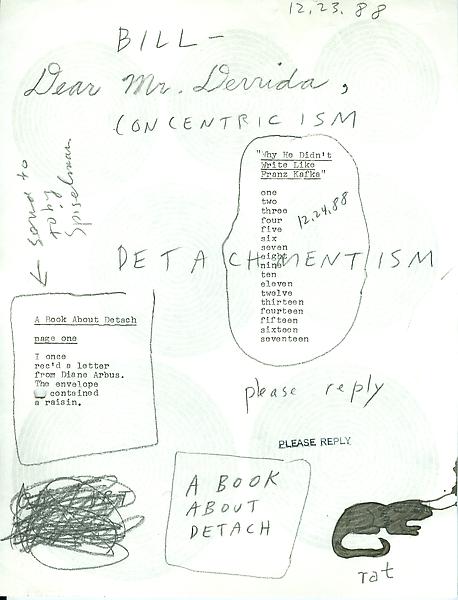 12.23.88
BILL—
Dear Mr. Derrida,
CONCENTRICISM
send to
toby
Spiselman
"Why He Didn't
Write Like
Franz Kafka"
one
two
three
four
five
six
seven
eight
nine
ten
eleven
twelve
thirteen
fourteen
fifteen
sixteen
seventeen
12.24.88
DETACHMENTISM
A Book About Detach
page one
I once
rec'd a letter
from Diane Arbus.
The envelope
contained
a raisin.
please reply
PLEASE REPLY
A BOOK
ABOUT
DETACH
rat